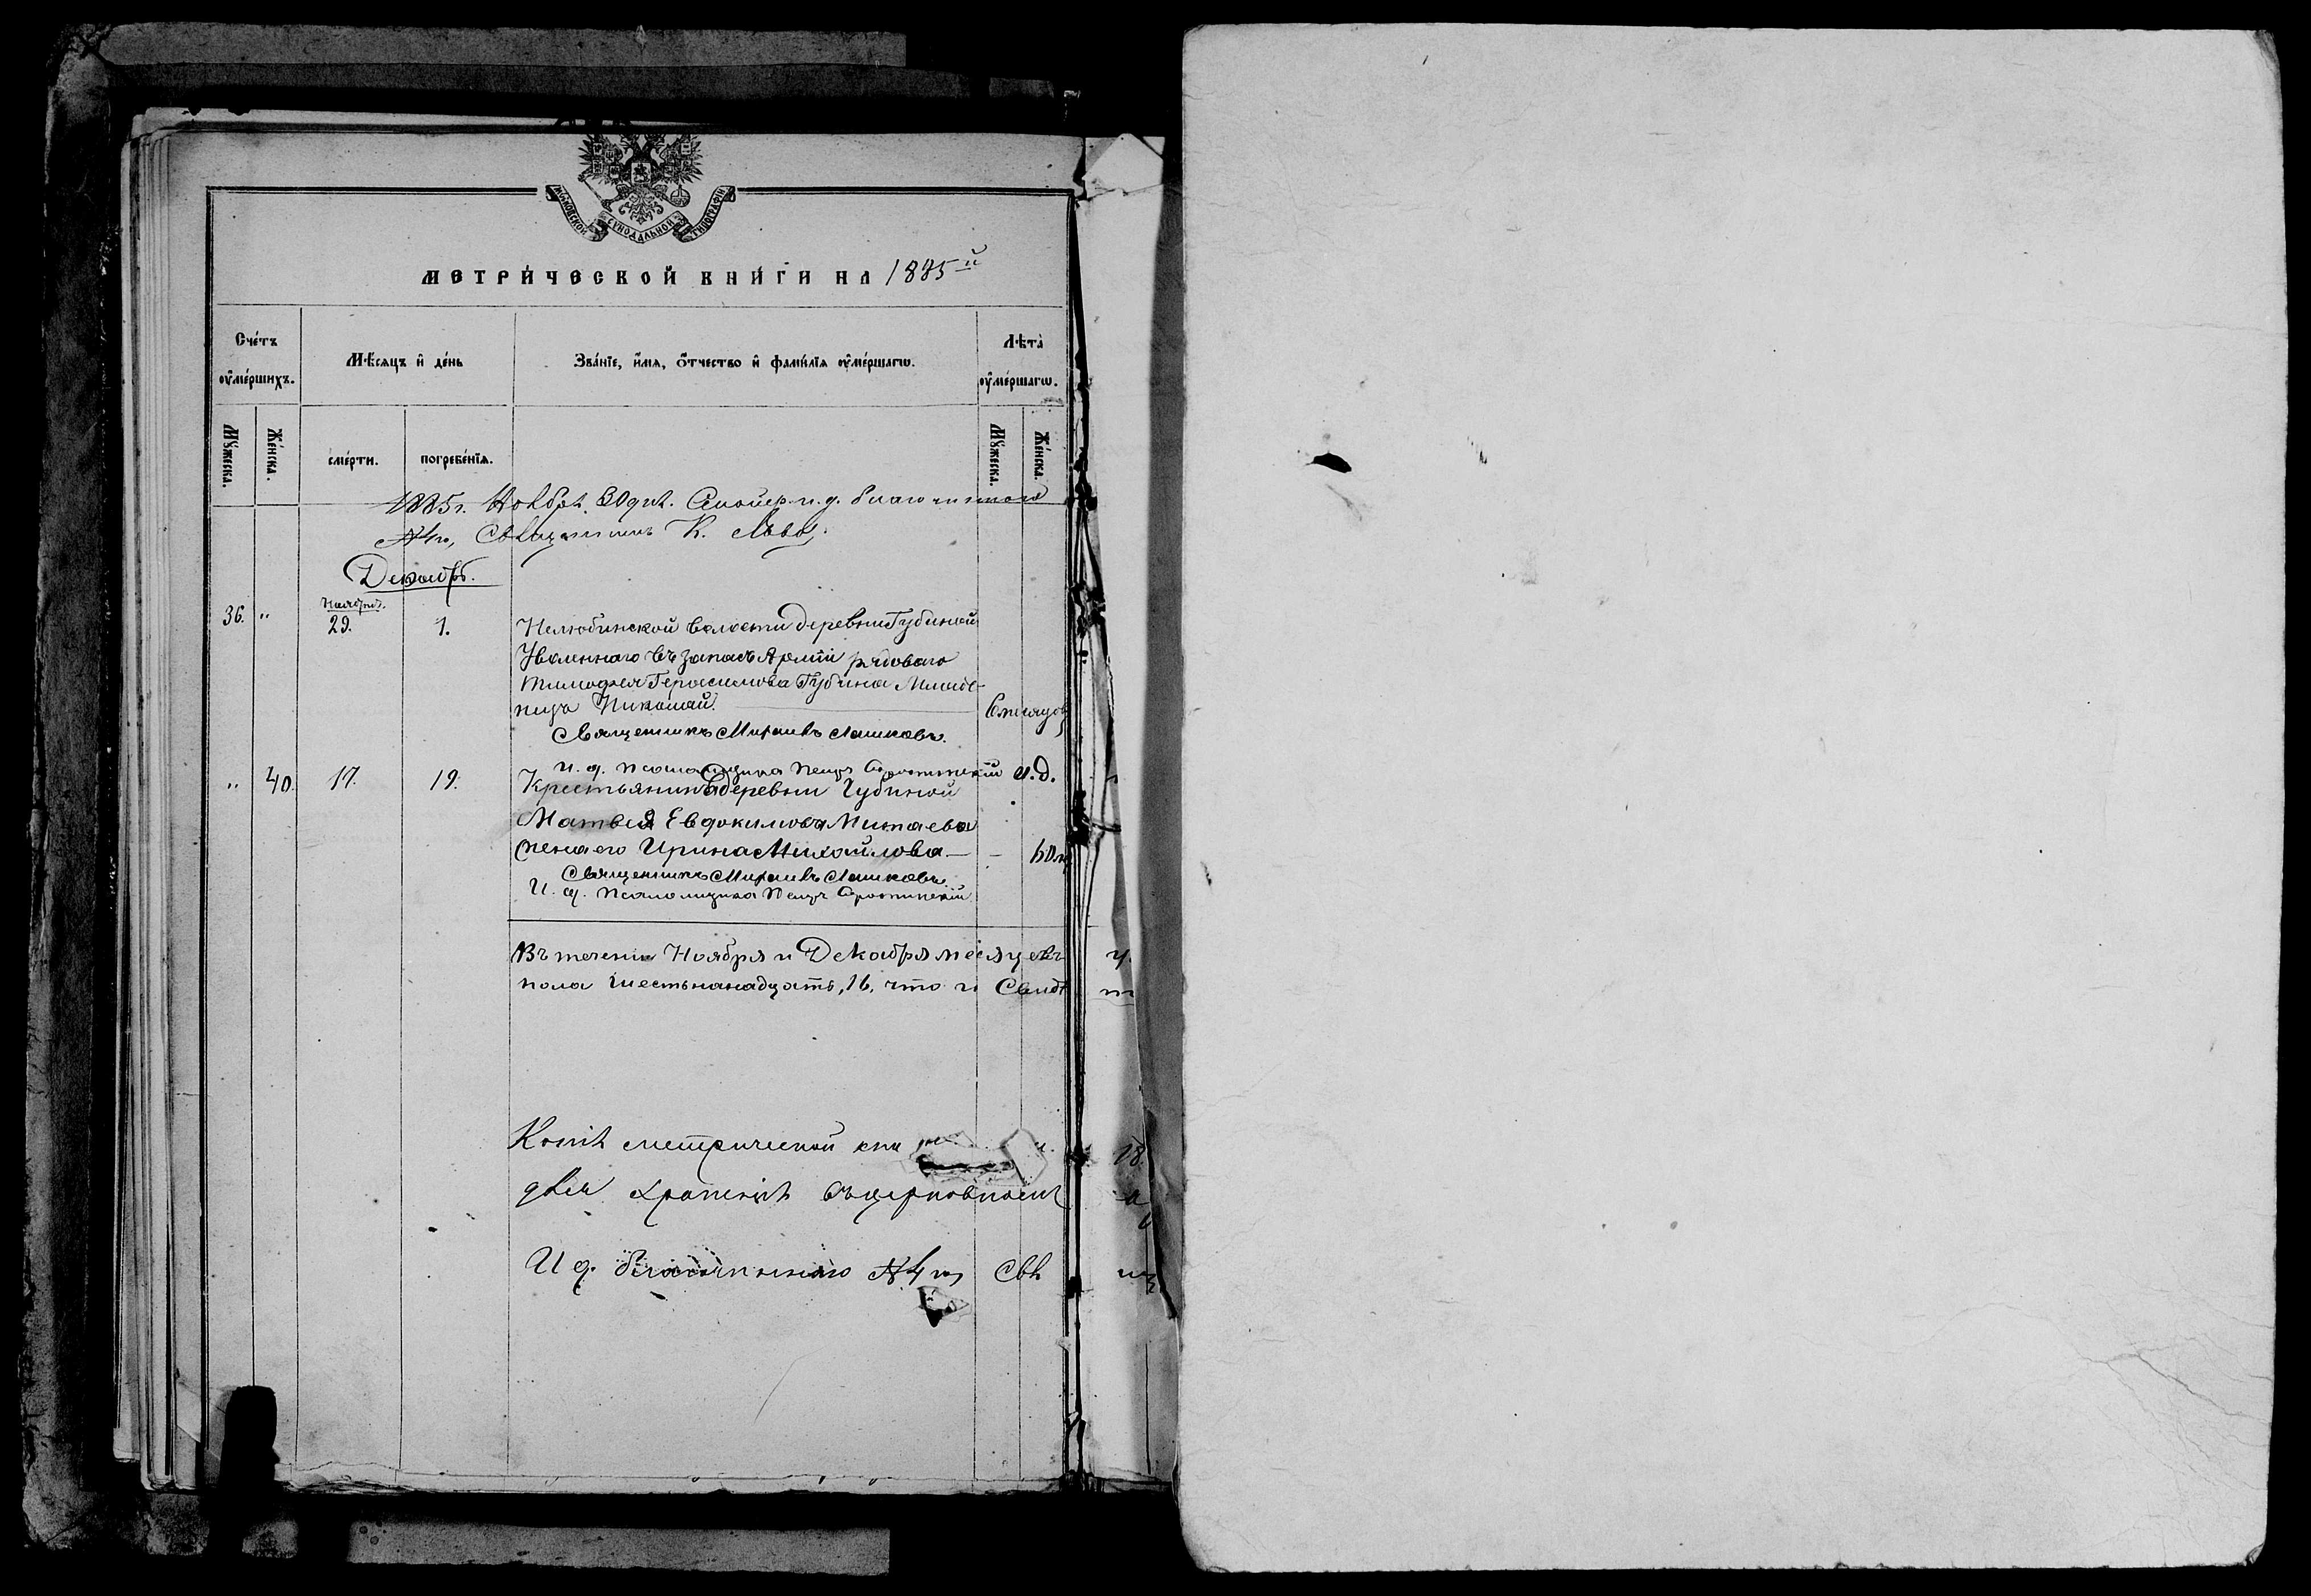 МОСКОВСКОЙ СѴНОДАЛЬНОЙ ТИПОГРАФІИ
МЕТРИ́ЧЕСКОЙ КНИ́ГИ НА 1885й
Сче́тъ ᲂу҆ме́ршихъ.
Мѣ́сяцъ и҆ де́нь
Зва́нїе, и҆́мѧ, ѻ҆́тчество и҆ фами́лїѧ ᲂу҆ме́ршагѡ.
Лѣта̀ ᲂу҆ме́ршагѡ.
Мꙋ́жеска.
Же́нска.
сме́рти.
погребе́нїѧ.
Мꙋ́жеска.
Же́нска.
1885 г. Ноября 30 дня. и. д. благочиннаго
№ 4го, Священникъ К.
Декабрь.
36. " Ноября. 29. 1. Нелюбинской волости деревни Губиной
Уволеннаго въ запасъ Арміи рядоваго
Тимофея Герасимова Губина Младе-
нецъ Николай. 6 месяцов
Священникъ Михаилъ Лашковъ.
И. д. псаломщика Петръ
" 40. 17. 19. Крестьянина деревни Губиной
Матвея Евдокимова Митаева
жена его Ирина Михайлова — — 60
Священникъ Михаилъ Лашковъ.
И. д. псаломщика Петръ
Въ течении Ноября и Декабря месяцевъ
пола шестьнанадцать, 16, что и
Копія метрической
для храненія въ церковномъ
И д. благочиннаго № 4го Свя